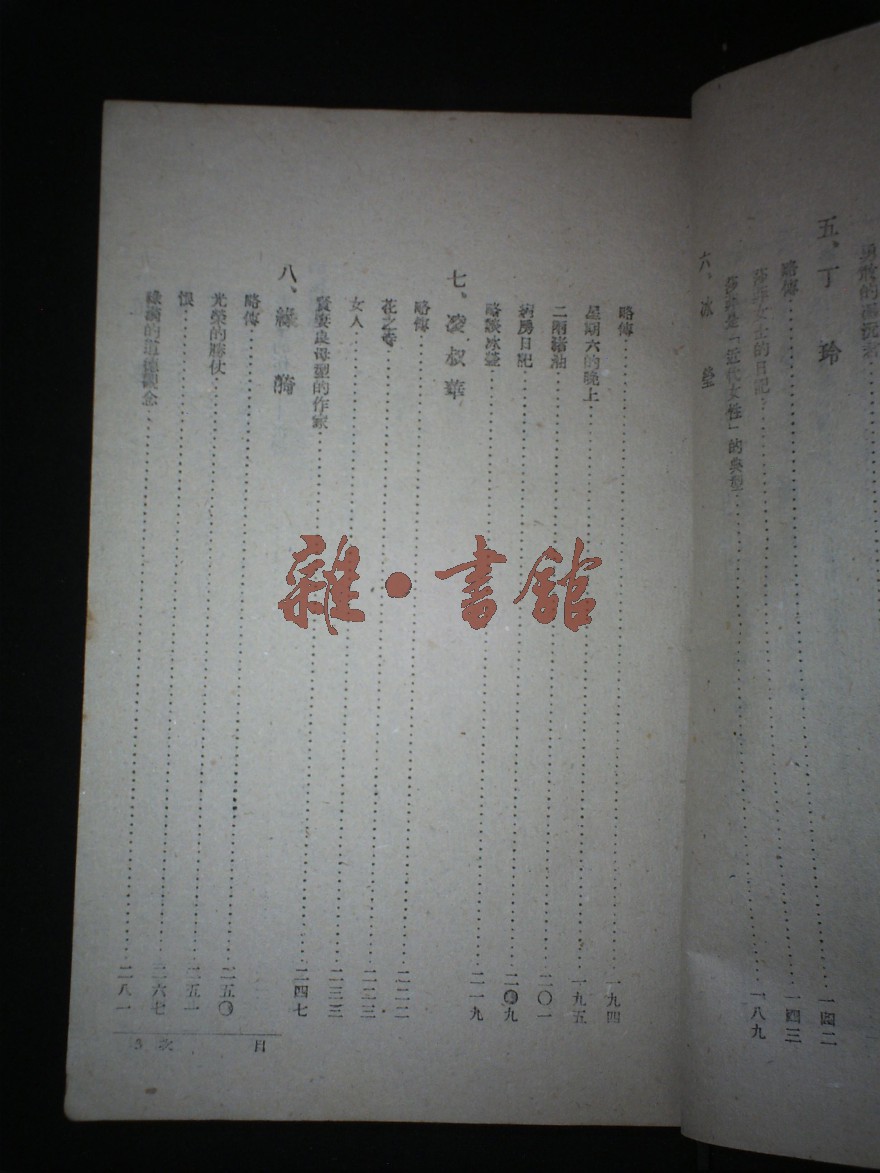 五、丁　玲
略傳……一四二
莎菲女士的日記……一四三
莎菲是「近代女性」的典型……一八九
六、冰　瑩
略傳……一九四
星期六的晚上……一九五
二兩豬油……二〇一
病房日記……二〇九
略談冰瑩……二一九
七、凌叔華
略傳……二二二
花之寺……二二三
女人……二三三
賢妻良母型的作家……二四七
八、綠　漪
略傳……二五〇
光榮的勝仗……二五一
恨……二六七
綠漪的道德觀念……二八一
目　次　3
雜·書館